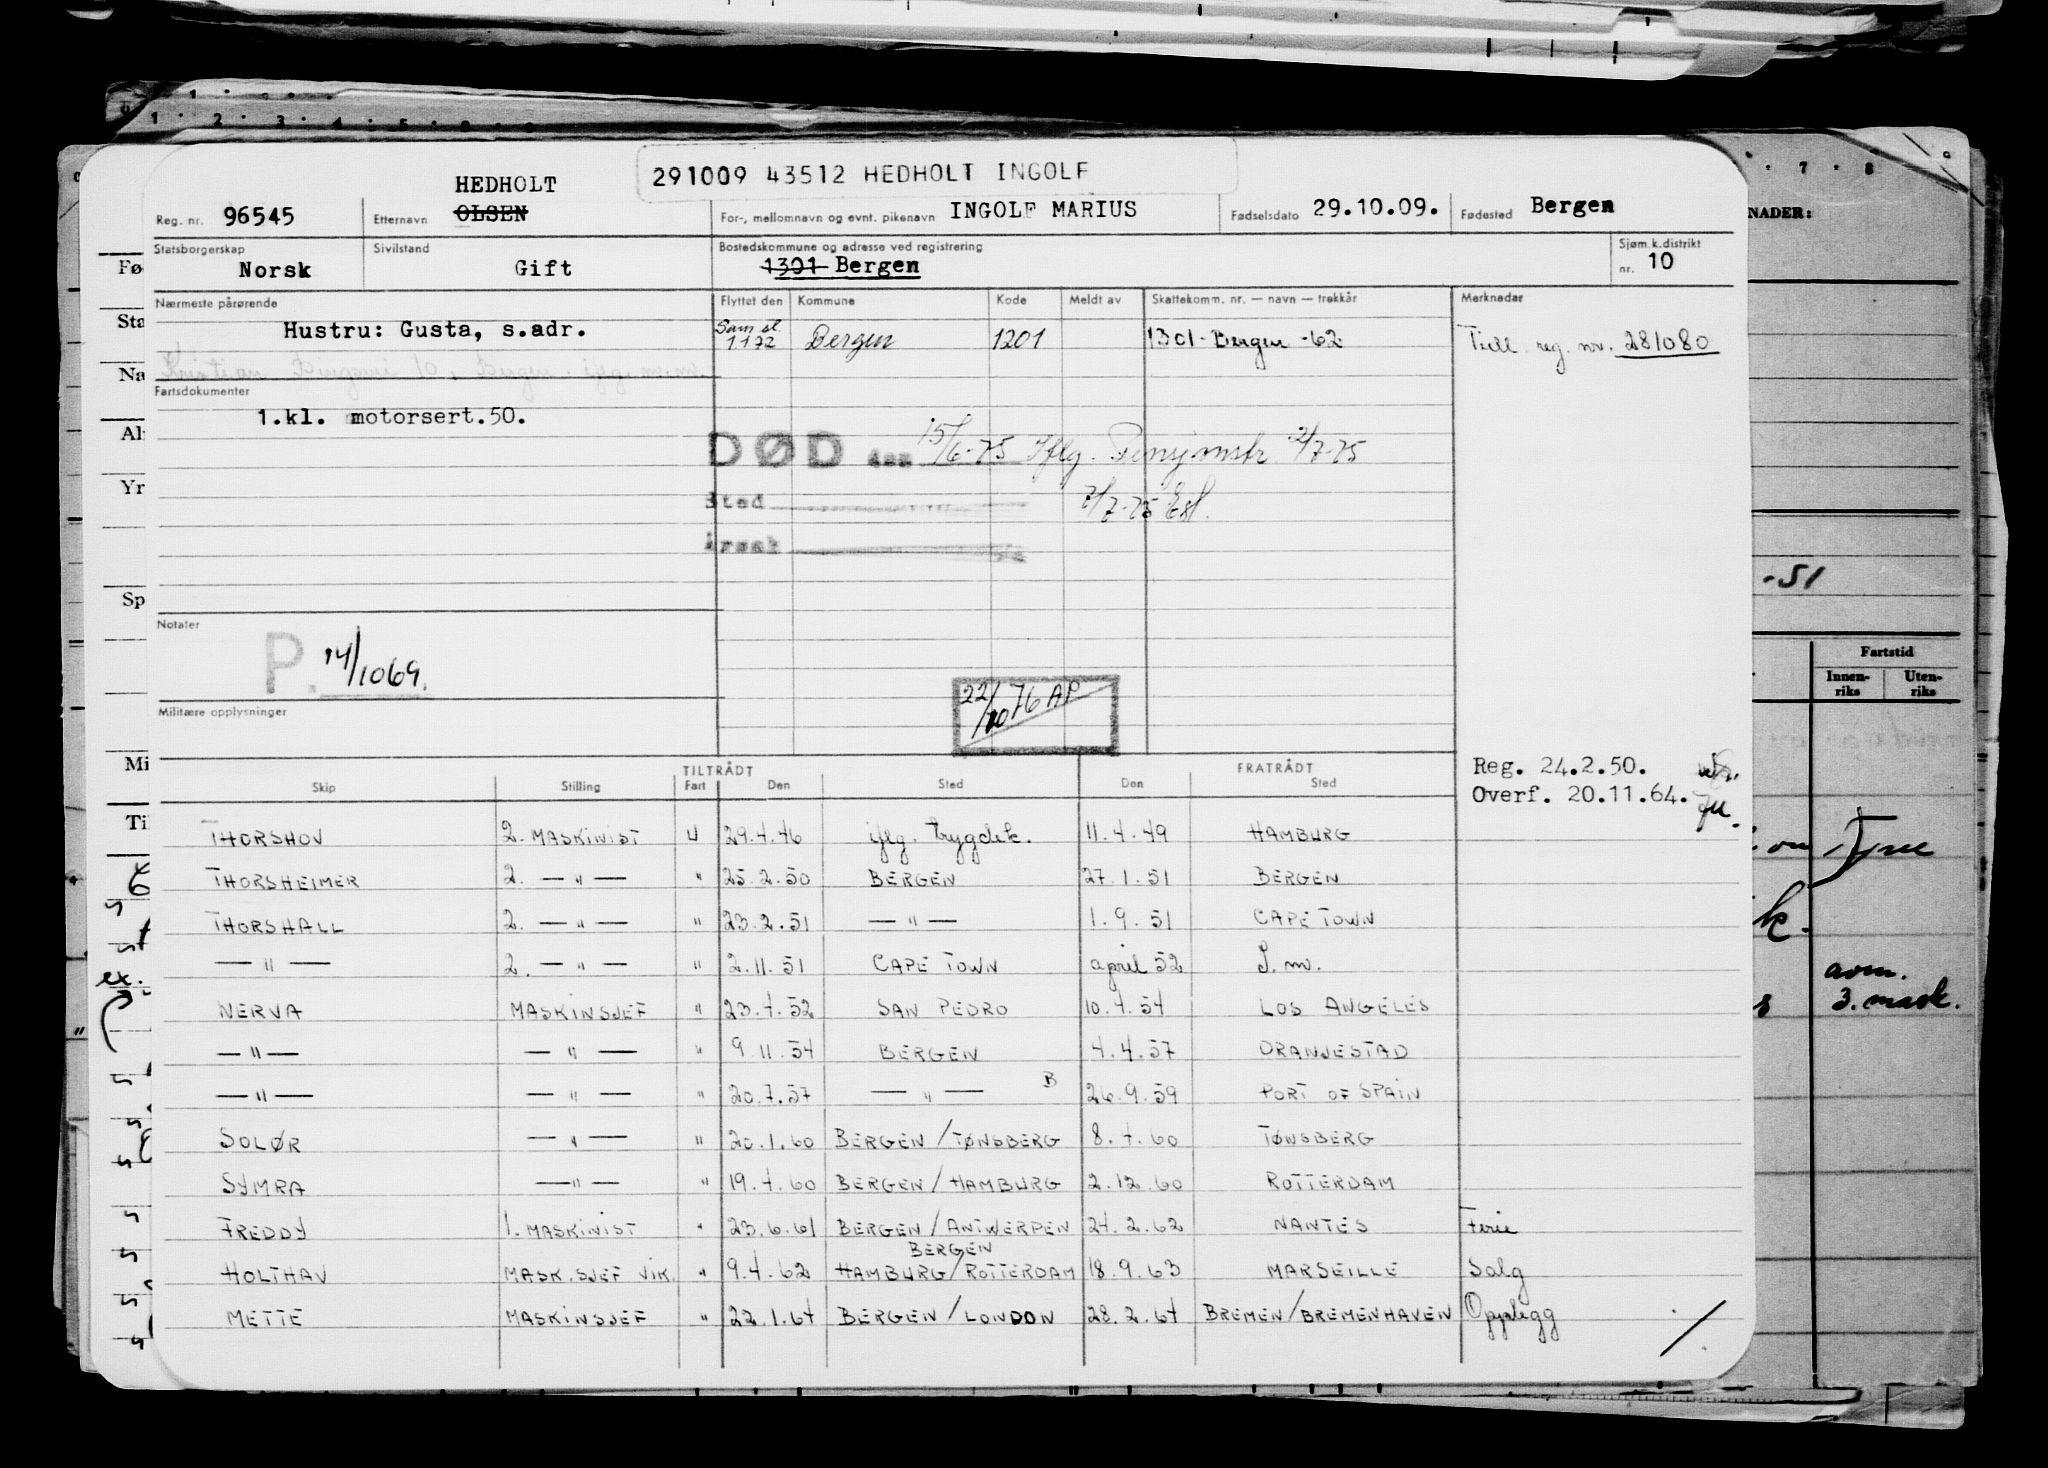 291009 43512 HEDHOLT INGOLF
Reg. nr. 96545 Etternavn HEDHOLT OLSEN For-, mellomnavn og evnt. pikenavn INGOLF MARIUS Fødselsdato 29.10.09. Fødested Bergen
Statsborgerskap Norsk Sivilstand Gift Bostedskommune og adresse ved registrering 1301 Bergen Sjøm.k.distrikt nr. 10
Nærmeste pårørende Flyttet den Kommune Kode Meldt av Skattekomm. nr. — navn — trekkår Merknader
Hustru: Gusta, s.adr. Sam.sl. 1172 Bergen 1201 1301 - Bergen - 62 Tidl. reg. nr. 281080
Fartsdokumenter
1.kl. motorsert.50.
DØD den 15/6-75 Iflg. Pensjonstr. 2/7-75
Sted 2/7-75
Årsak
Notater
P. 14/1069.
22/10 76 AP
Militære opplysninger
Reg. 24.2.50.
Overf. 20.11.64.
TILTRÅDT FRATRÅDT
Skip Stilling Fart Den Sted Den Sted
THORSHOV 2. MASKINIST U 29.4.46 iflg. trygdek. 11.4.49 HAMBURG
THORSHEIMER 2. — " — " 25.2.50 BERGEN 27.1.51 BERGEN
THORSHALL 2. — " — " 23.2.51 — " — 1.9.51 CAPE TOWN
— " — 2. — " — " 2.11.51 CAPE TOWN april 52
NERVA MASKINSJEF " 23.4.52 SAN PEDRO 10.4.54 LOS ANGELES
— " — — " — " 9.11.54 BERGEN 4.4.57 ORANJESTAD
— " — — " — " 20.7.57 — " — B 26.9.59 PORT OF SPAIN
SOLØR — " — " 20.1.60 BERGEN/TØNSBERG 8.4.60 TØNSBERG
SYMRA — " — " 19.4.60 BERGEN/HAMBURG 2.12.60 ROTTERDAM
FREDDY 1. MASKINIST " 23.6.61 BERGEN/ANTWERPEN 24.2.62 NANTES Ferie
BERGEN
HOLTHAV MASK.SJEF VIK. " 9.4.62 HAMBURG/ROTTERDAM 18.9.63 MARSEILLE Salg
METTE MASKINSJEF " 22.1.64 BERGEN/LONDON 28.2.64 BREMEN/BREMENHAVEN Opplegg
NADER:
-51
Fartstid
Innen-riks Uten-riks
Tyne
avm.
3. mask.
Fø
Sta
Na
Al
Yr
Sp
Mi
Ti